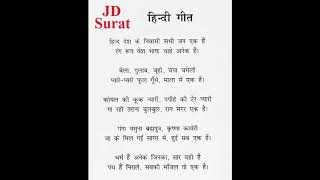 JD
Surat
हिन्दी गीत
हिन्द देश के निवासी सभी जन एक हैं
रंग रूप वेश भाषा चाहे अनेक हैं।
बेला, गुलाब, जूही, चंपा चमेली
प्यारे-प्यारे फूल गूँथे, माला में एक हैं।
कोयल की कूक न्यारी, पपीहे की टेर प्यारी
गा रही तराना बुलबुल, राग मगर एक है।
गंगा यमुना ब्रह्मपुत्र, कृष्णा कावेरी
जा के मिल गई सागर में, हुई सब एक हैं।
धर्म हैं अनेक जिनका, सार यही है
पंथ हैं निराले, सबकी मंजिल तो एक है।